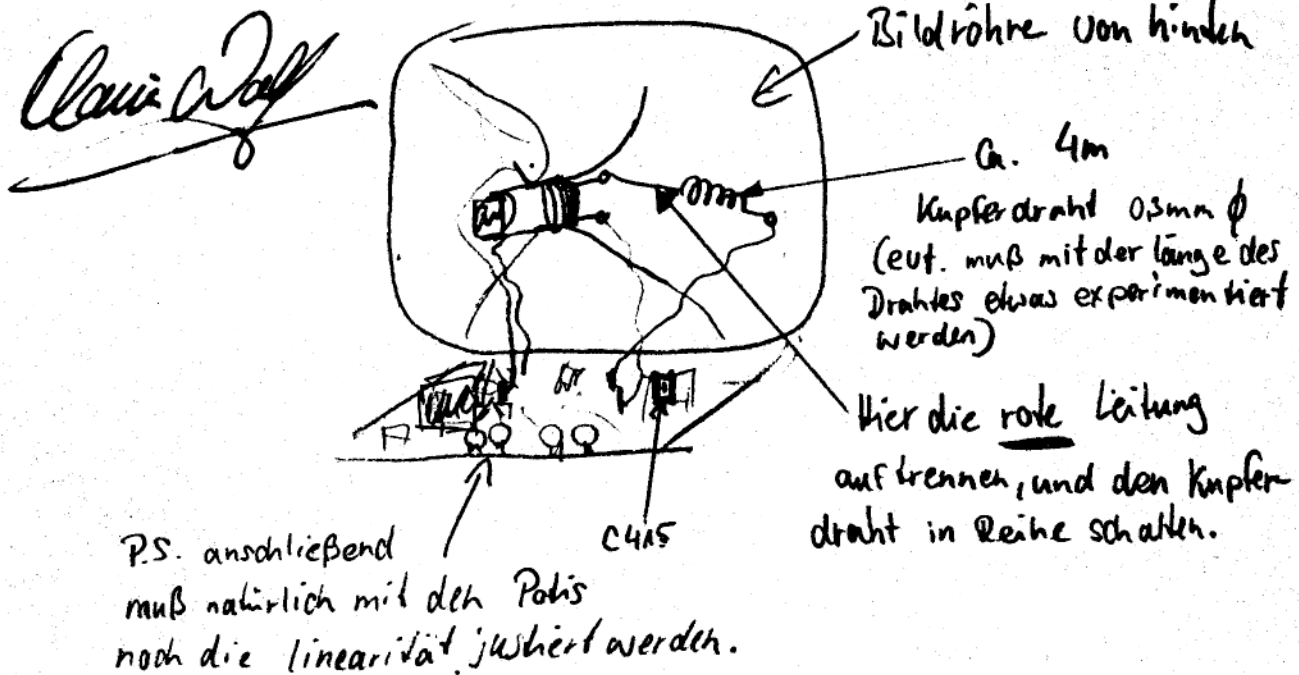 Bildröhre von hinten
Ca. 4m
Kupferdraht 0,3mm ϕ
(evt. muß mit der länge des
Drahtes etwas experimentiert
werden)
Hier die rote Leitung
auftrennen, und den Kupfer-
draht in Reihe schalten.
C415
P.S. anschließend
muß natürlich mit den Potis
noch die linearität justiert werden.